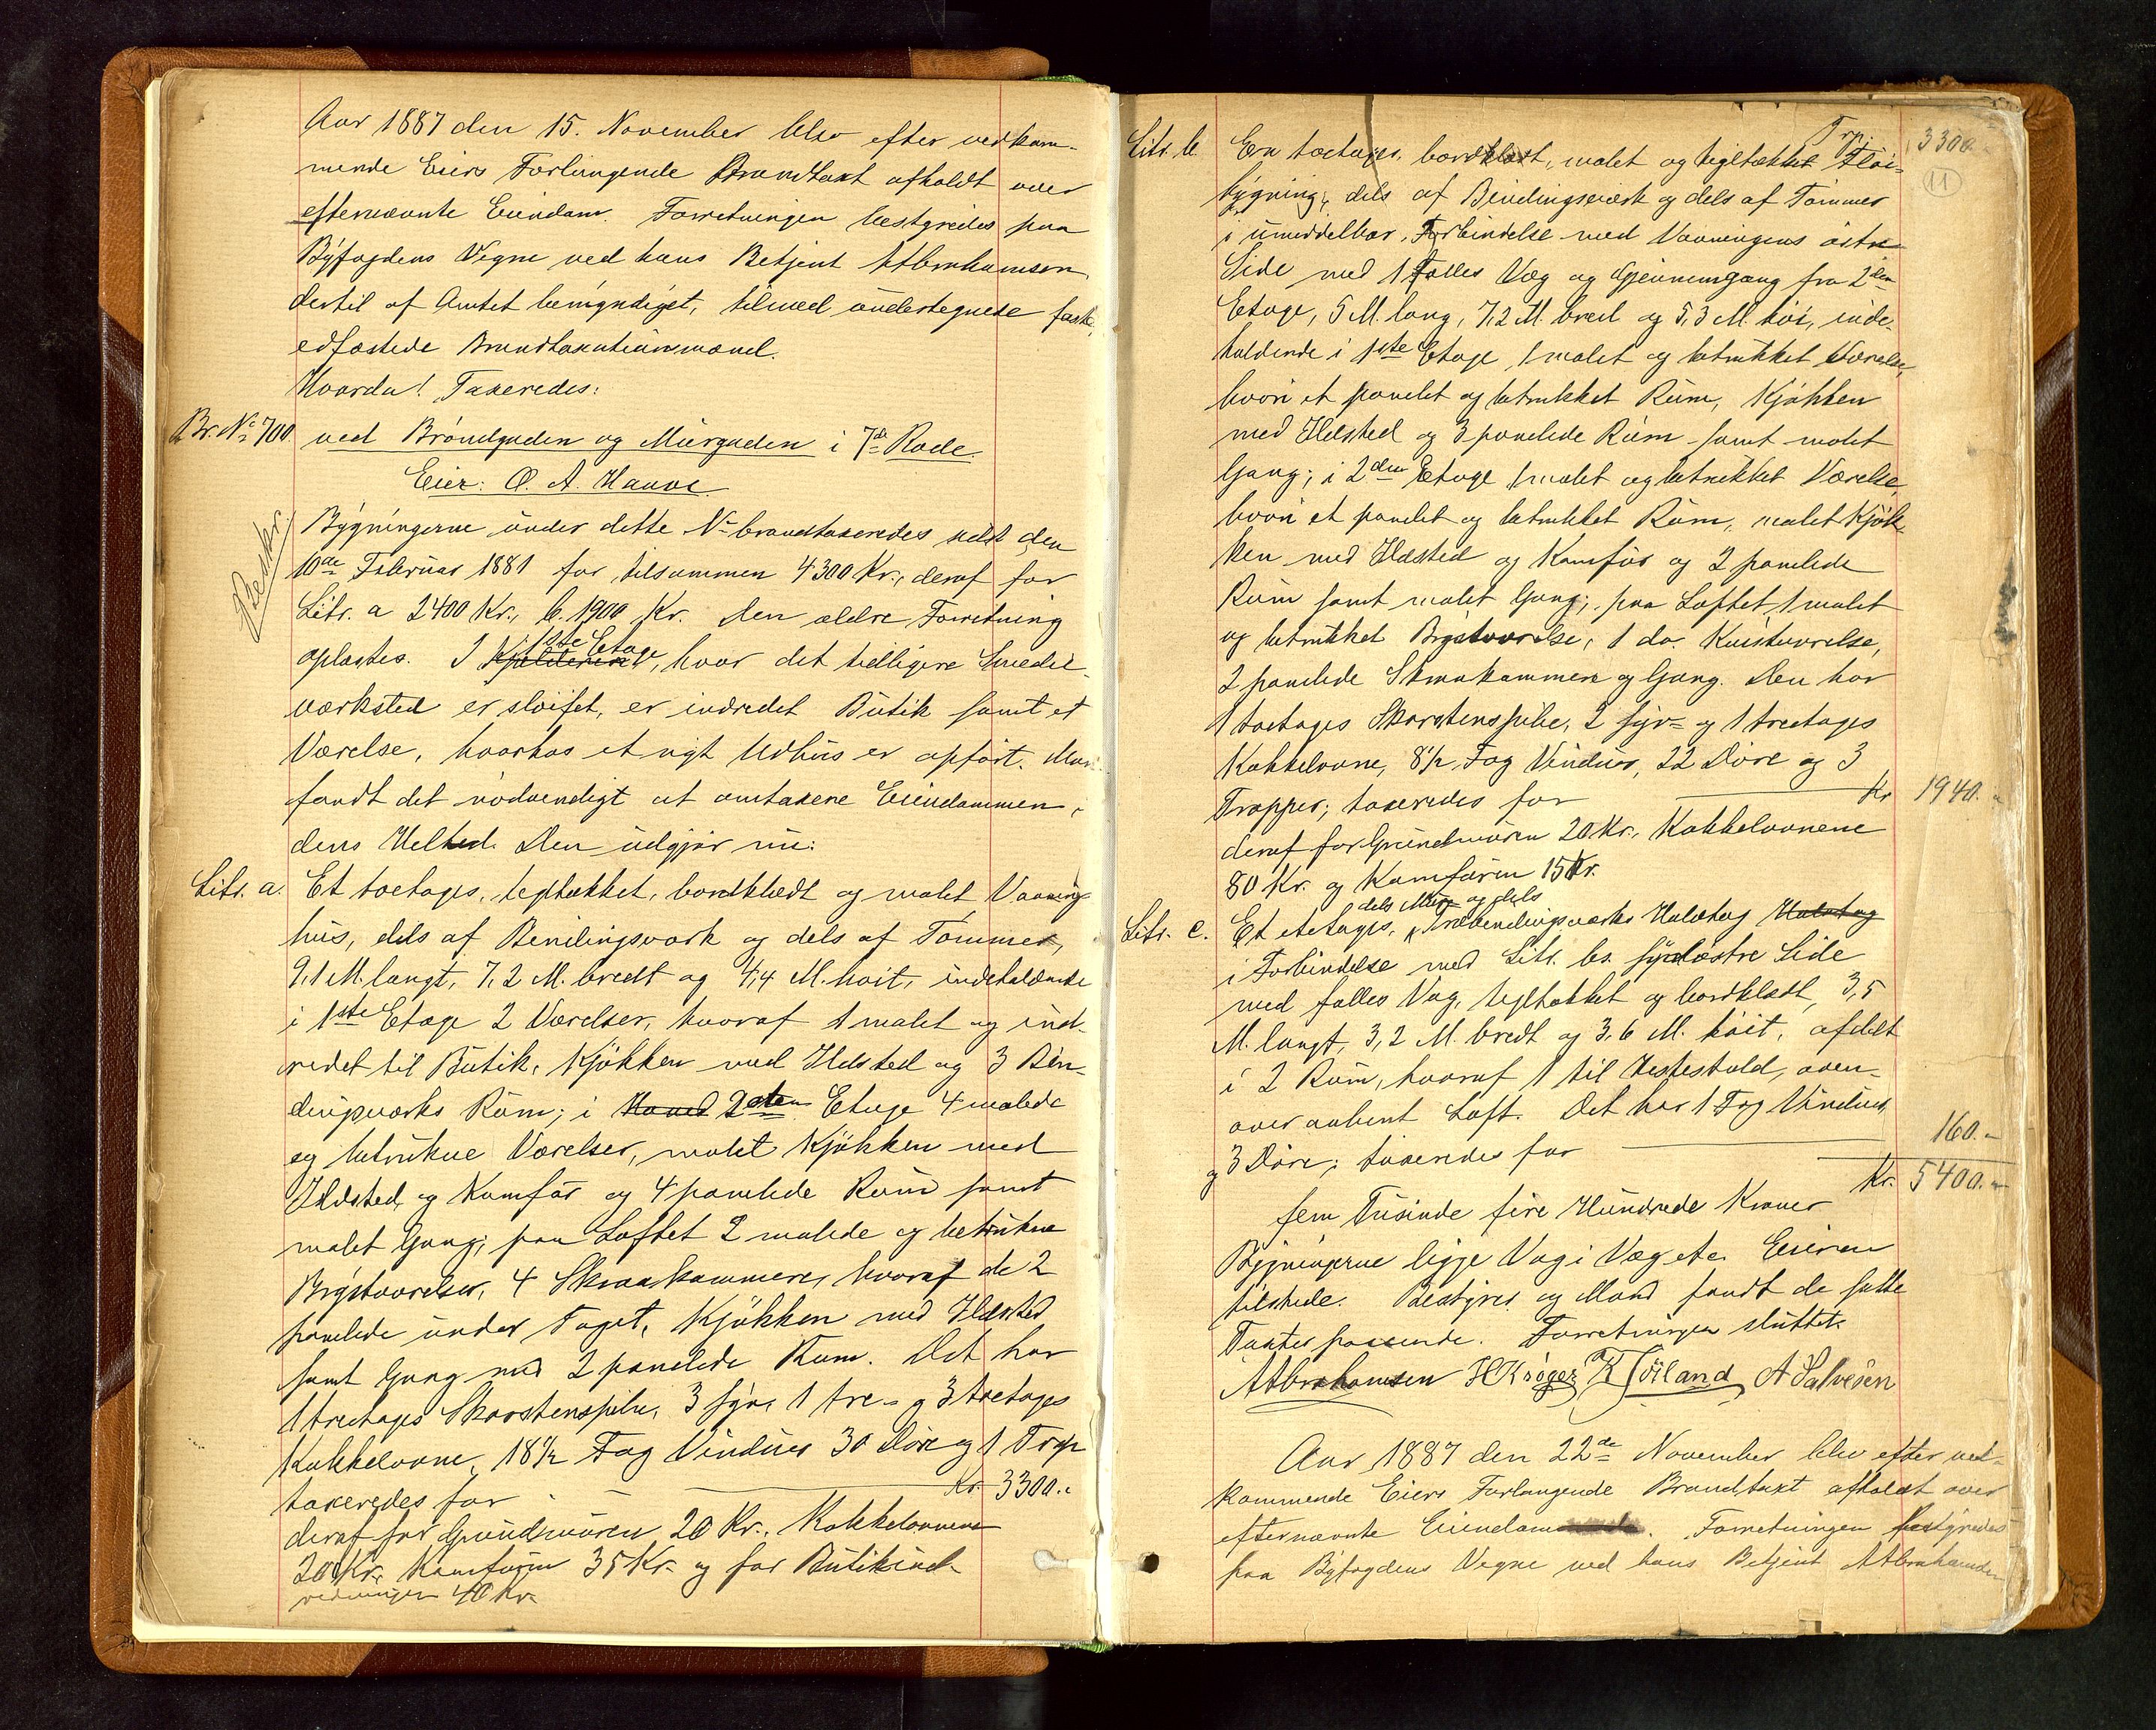 Aar 1887 den 15. November blev efter vedkom-
mende Eiers Forlangende Brandtaxt afholdt over
efternævnte Eiendom. Forretningen bestyredes paa
Byfogdens Vegne ved hans Betjent Abrahamsen,
dertil af Amtet bemyndiget, tilmed undertegnede faste,
edfæstede Brandtaxationsmænd.
Hvorda! Taxeredes:
Br. No 700 ved Brøndgaden og Murgaden i 7de Rode.
Eier: O. A. Hauve.
Beskr.
Bygningerne under dette No brandtaxeredes sidst den
10de Februar 1881 for tilsammen 4300 Kr., deraf for
Litr. a 2400 Kr., b. 1900 Kr. Den ældre Forretning
oplæstes. I Kjælderen 1ste Etage, hvor det tidligere Smedie-
værksted er sløifet, er indredet Butik samt et
Værelse, hvorhos et nyt Udhus er opført. Man
fandt det nødvendigt at omtaxere Eiendommen i
dens Helhed. Den udgjør nu:
Litr. a. Et toetages, tegltækket, bordklædt og malet Vaanings-
hus, dels af Bindingsværk og dels af Tømmer,
9,1 M. langt, 7,2 M. bredt og 4,4 M. høit, indeholdende
i 1ste Etage 2 Værelser, hvoraf 1 malet og ind-
redet til Butik, Kjøkken med Ildsted og 3 Bin-
dingsværks Rum; i 2den Etage 4 malede
og betrukne Værelser, malet Kjøkken med
Ildsted og Komfur og 4 panelede Rum samt
malet Gang; paa Loftet 2 malede og betrukne
Brystværelser, 4 Skraakammere, hvoraf de 2
panelede under Taget, Kjøkken med Ildsted
samt Gang med 2 panelede Rum. Det har
1 treetages Skorstenspibe, 3 fyr, 1 tre- og 3 toetages
Kakkelovne, 18 1/2 Fag Vinduer 30 Døre og 1 Trp
taxeredes for Kr. 3300.
deraf for Grundmuren 20 Kr., Kakkelovnene
20 Kr., Komfuren 35 Kr. og for Butikind-
redningen 40 Kr.
Trp. 3300.
11
Litr. b. En toetages, bordklædt, malet og tegltækket Fløi-
bygning, dels af Bindingsværk og dels af Tømmer
i umiddelbar Forbindelse med Vaaningens østre
Side med 1 fælles Væg og Gjennemgang fra 2den
Etage, 5 M. lang, 7,2 M. bred og 5,3 M. høi, inde-
holdende i 1ste Etage 1 malet og betrukket Værelse,
hvori et panelet og betrukket Rum, Kjøkken
med Ildsted og 3 panelede Rum samt malet
Gang; i 2den Etage 1 malet og betrukket Værelse,
hvori et panelet og betrukket Rum, malet Kjøk-
ken med Ildsted og Komfur og 2 panelede
Rum samt malet Gang; paa Loftet 1 malet
og betrukket Brystværelse, 1 do. Kvistværelse,
2 panelede Skraakammere og Gang. Den har
1 toetages Skorstenspibe, 2 fyr- og 1 treetages
Kakkelovne, 8 1/2 Fag Vinduer, 22 Døre og 3
Trapper; taxeredes for Kr 1940.
deraf for Grundmuren 20 Kr., Kakkelovnene
80 Kr. og Komfuren 15 Kr.
Litr. c. Et etetages, dels Mur og dels Træbindingsværks Halvtag Halvtag
i Forbindelse med Litr. bs. sydøstre Side
med fælles Væg, tegltækket og bordklædt, 3,5
M. langt, 3,2 M. bredt og 3,6 M. høit, afdelt
i 2 Rum, hvoraf 1 til Hestestald, oven-
over aabent Loft. Det har 1 Fag Vinduer,
og 3 Døre; taxeredes for 160.
Kr. 5400.
fem Tusinde fire Hundrede Kroner
Bygningerne ligge Væg i Væg etc. Eieren
tilstede. Bestyrer og Mænd fandt de satte
Taxter passende. Forretningen sluttet.
AAbrahamsen HKrøger K Föiland A Salvesen
Aar 1887 den 22de November blev efter ved-
kommende Eiers Forlangende Brandtaxt afholdt over
efternævnte Eiendom. Forretningen bestyredes
paa Byfogdens Vegne ved hans Betjent AAbrahamsen